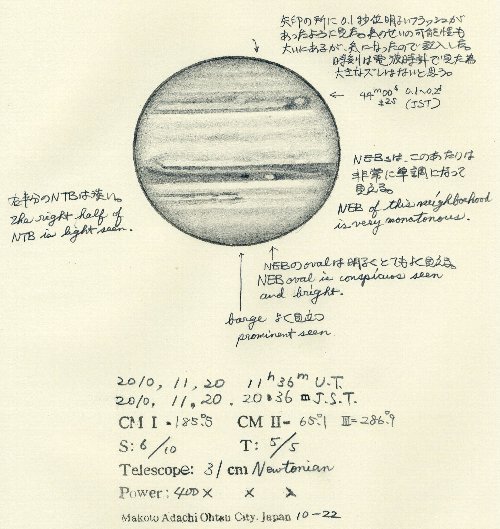 矢印の所に0.1秒位明るいフラッシュが
あったように見た。気のせいの可能性も
大いにあるが、気になったので記入した。
時刻は電波時計で見た為
大きなズレはないと思う。
← 44m00s 0.1~0.2
±2s (JST)
NEBsは、このあたりは
非常に単調になって
見える。
NEB of this neighborhood
is very monotonous.
右半分のNTBは淡い。
The right half of
NTB is light seen.
NEBのovalは明るくとてもよく見える。
NEB oval is conspicuous seen
and bright.
barge よく目立つ
prominent seen
2010, 11, 20 11h 36m U.T.
2010, 11, 20. 20:36 m J.S.T.
CM I = 185°.5 CM II= 65°.1 III=286°.9
S: 6/10 T: 5/5
Telescope: 31 cm Newtonian
Power: 400 × × ×
Makoto Adachi Ohtsu City. Japan 10-22